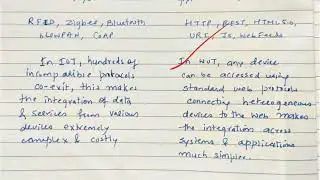 RFID, Zigbee, Bluetooth
6LoWPAN, CoAP
In IOT, hundreds of
incompatible protocols
co-exit, this makes
the integration of data
& services from various
devices extremely
complex & costly
HTTP, REST, HTML5.0,
URI, JS, WebFeeds
In WOT, any device
can be accessed using
standard web protocols
connecting heterogeneous
devices to the web makes
the integration across
systems & applications
much simpler.